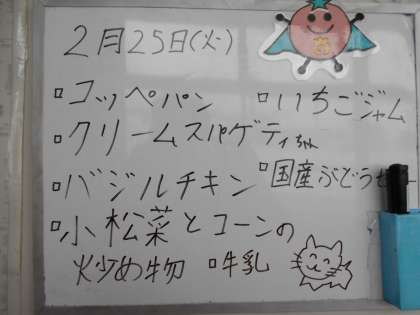 2月25日(火)
▫コッペパン ▫いちごジャム
▫クリームスパゲティちゃん
▫バジルチキン ▫国産ぶどうゼリー
▫小松菜とコーンの
炒め物 ▫牛乳